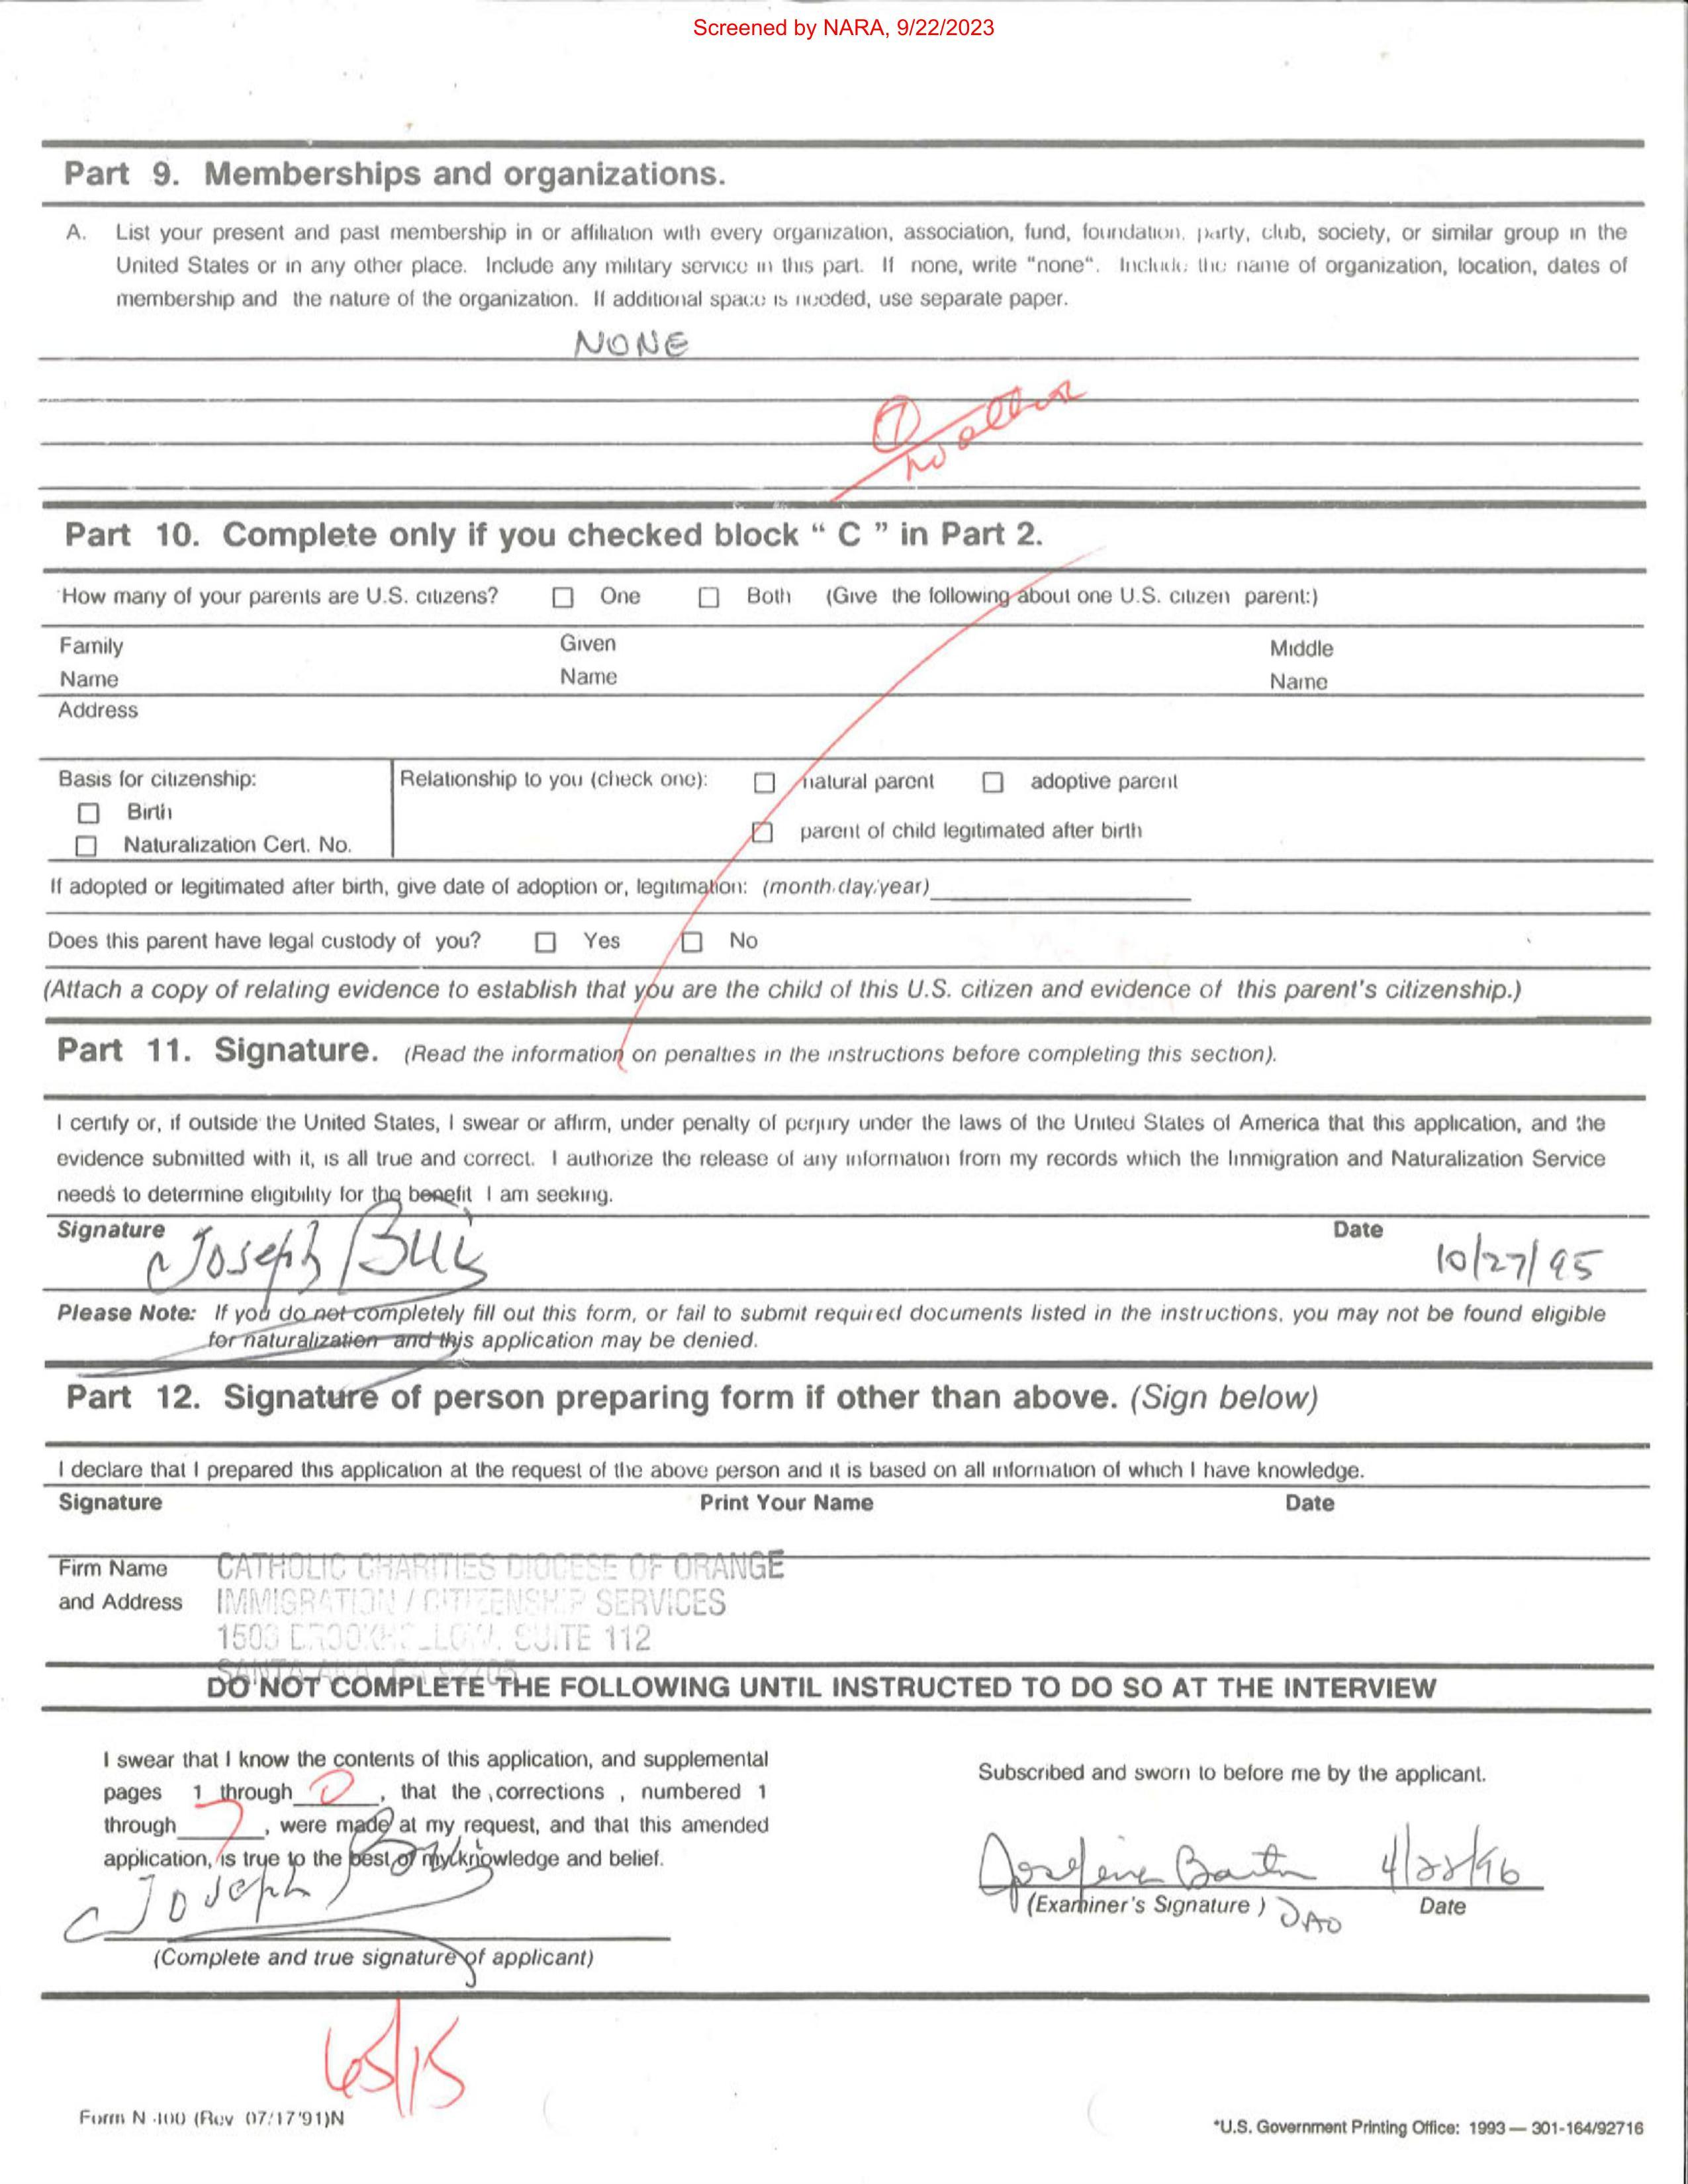 Screened by NARA, 9/22/2023
Part 9. Memberships and organizations.
A. List your present and past membership in or affiliation with every organization, association, fund, foundation, party, club, society, or similar group in the
United States or in any other place. Include any military service in this part. If none, write "none". Include the name of organization, location, dates of
membership and the nature of the organization. If additional space is needed, use separate paper.
NONE
7
no other
Part 10. Complete only if you checked block " C " in Part 2.
How many of your parents are U.S. citizens? ☐ One ☐ Both (Give the following about one U.S. citizen parent:)
Family Name Given Name Middle Name
Address
Basis for citizenship: Relationship to you (check one): ☐ natural parent ☐ adoptive parent
☐ Birth
☐ parent of child legitimated after birth
☐ Naturalization Cert. No.
If adopted or legitimated after birth, give date of adoption or, legitimation: (month/day/year)
Does this parent have legal custody of you? ☐ Yes ☐ No
(Attach a copy of relating evidence to establish that you are the child of this U.S. citizen and evidence of this parent's citizenship.)
Part 11. Signature. (Read the information on penalties in the instructions before completing this section).
I certify or, if outside the United States, I swear or affirm, under penalty of perjury under the laws of the United States of America that this application, and the
evidence submitted with it, is all true and correct. I authorize the release of any information from my records which the Immigration and Naturalization Service
needs to determine eligibility for the benefit I am seeking.
Signature Joseph Date 10/27/95
Please Note: If you do not completely fill out this form, or fail to submit required documents listed in the instructions, you may not be found eligible
for naturalization and this application may be denied.
Part 12. Signature of person preparing form if other than above. (Sign below)
I declare that I prepared this application at the request of the above person and it is based on all information of which I have knowledge.
Signature Print Your Name Date
Firm Name CATHOLIC CHARITIES DIOCESE OF ORANGE
and Address IMMIGRATION / CITIZENSHIP SERVICES
1503 BROOKHOLLOW, SUITE 112
SANTA ANA, CA 92705
DO NOT COMPLETE THE FOLLOWING UNTIL INSTRUCTED TO DO SO AT THE INTERVIEW
I swear that I know the contents of this application, and supplemental
pages 1 through 0, that the corrections , numbered 1
through 7, were made at my request, and that this amended
application, is true to the best of my knowledge and belief.
Joseph
(Complete and true signature of applicant)
Subscribed and sworn to before me by the applicant.
4/22/96
(Examiner's Signature ) DAO Date
65/15
Form N-400 (Rev 07/17/91)N
*U.S. Government Printing Office: 1993 — 301-164/92716